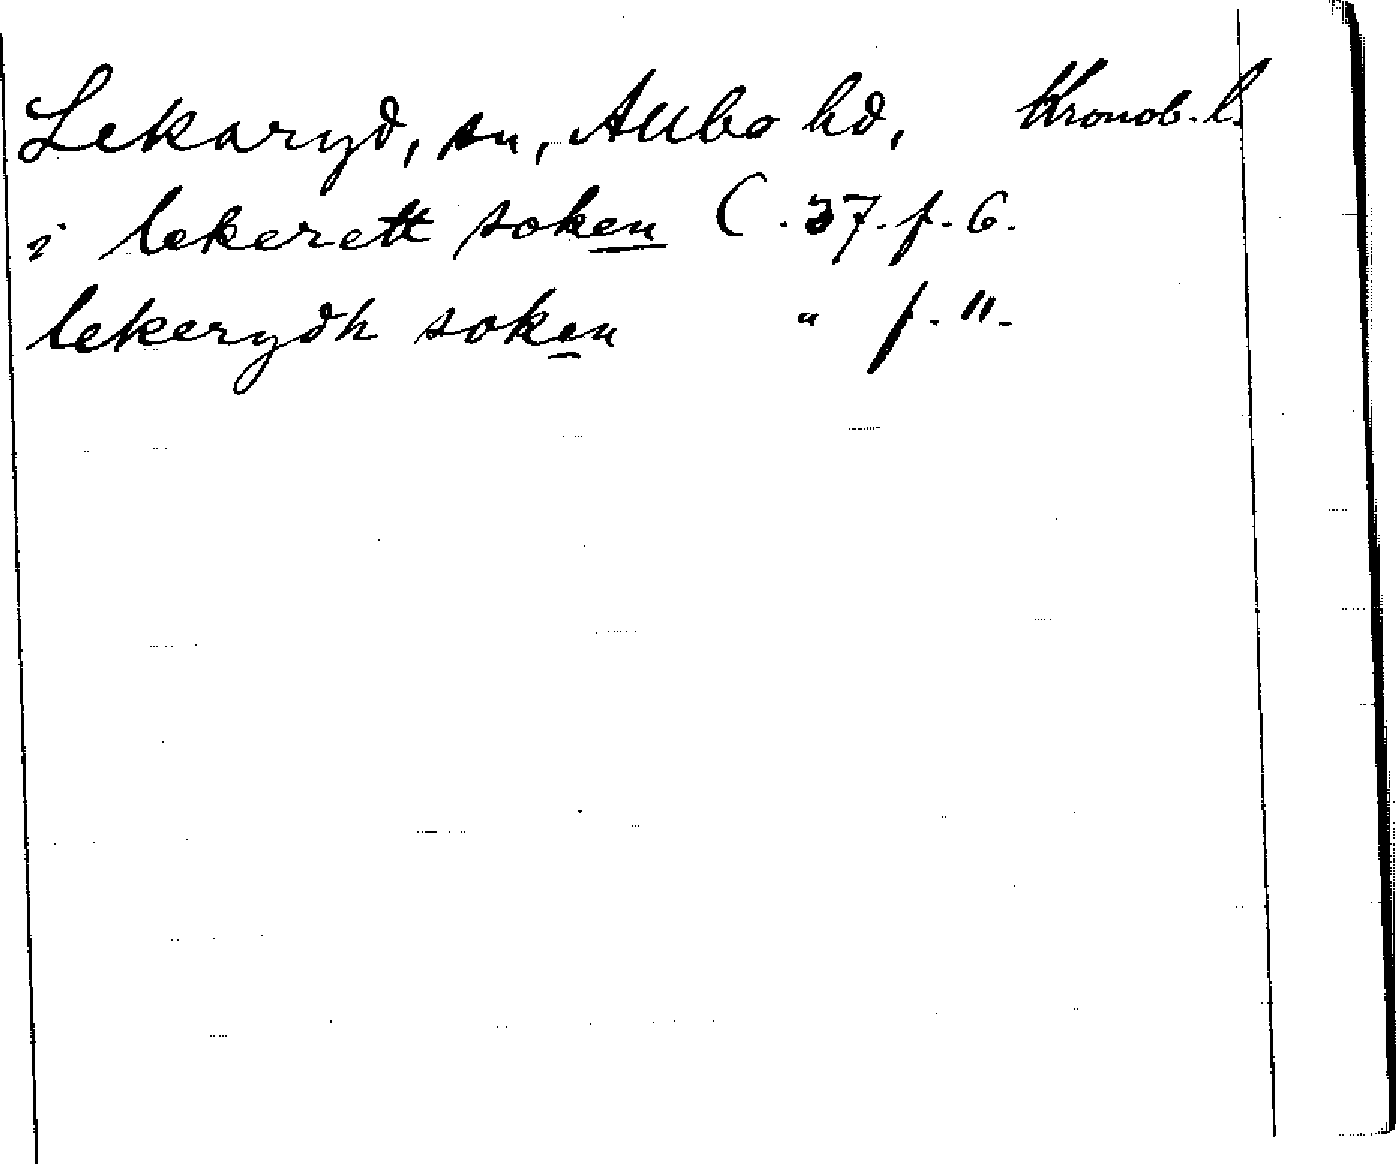 Lekaryd, sn, Allbo hd, Kronob. l.
i lekerett soken C. 37. f. 6.
lekerydh soken " f. 11.